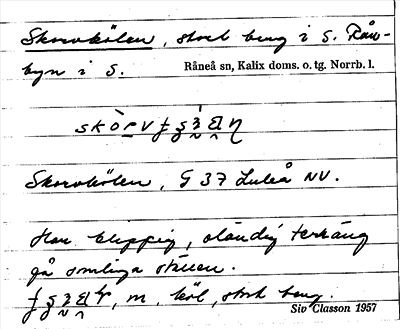 Skorvkölen, stort berg i S. Rån-
byn i S. Råneå sn, Kalix doms. o. tg. Norrb. l.
Skorvkölen, G 37 Luleå NV.
Har klippig, oländig terräng
på somliga ställen.
m. köl, stort berg.
Siv Classon 1957